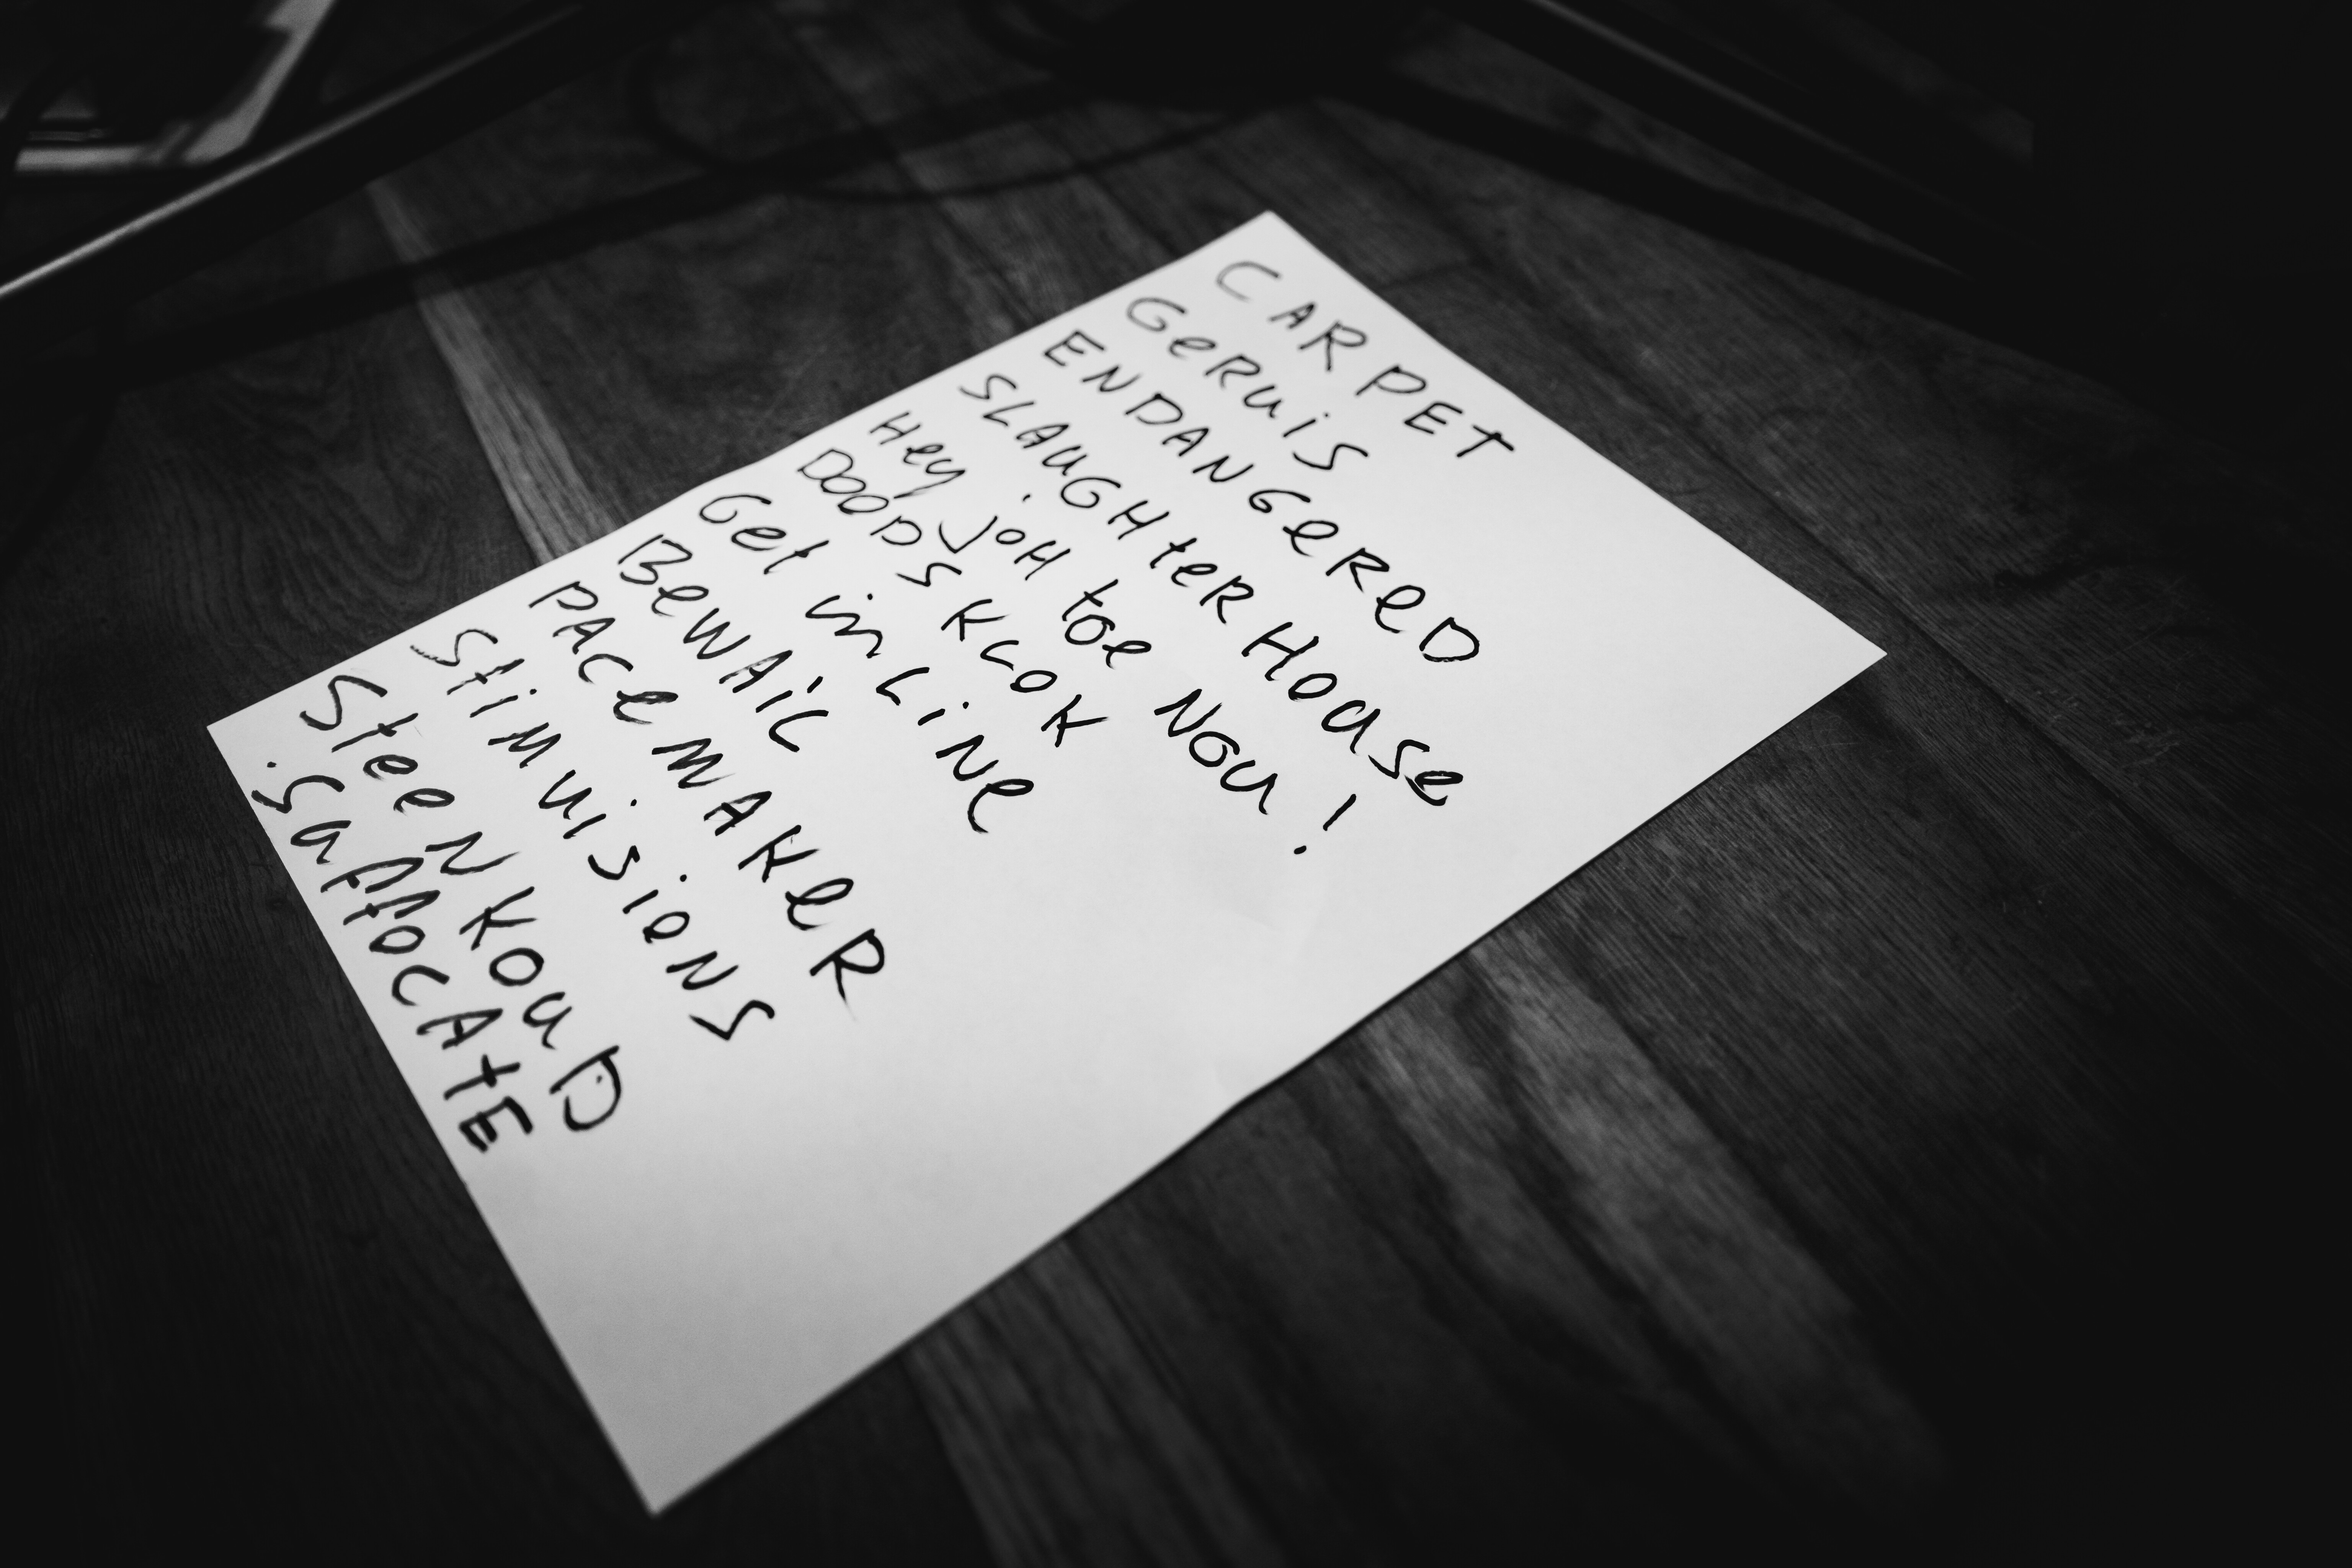 CARPET
GeRuis
ENDANGeReD
SLAUGHteRHOuse
Hey joH toe Nou!
DOODSKLOK
Get in LiNe
BeWAic
PACeMAKeR
StiMuisioNS
SteeNKouD
.SuffoCAtE